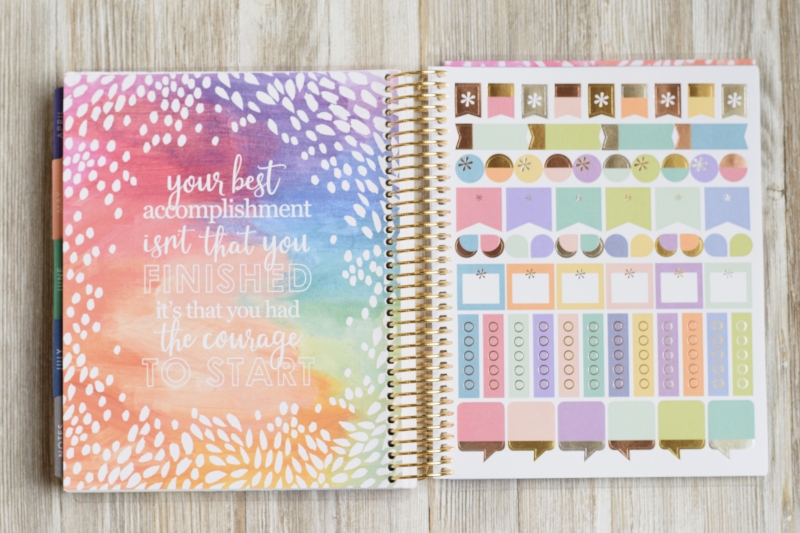 your best
accomplishment
isnt that you
FINISHED
it's that you had
the courage
TO START
JUNE
JULY
NOTES